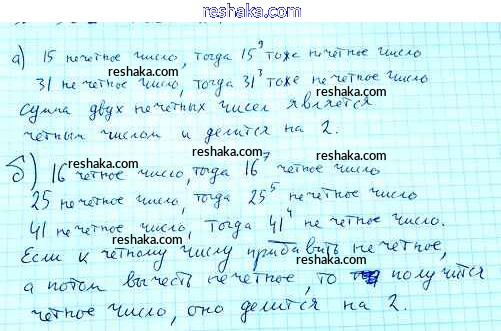 reshaka.com
а) 15 нечетное число, тогда 15⁹ тоже нечетное число
reshaka.com reshaka.com
31 нечетное число, тогда 31³ тоже нечетное число
reshaka.com
Сумма двух нечетных чисел является
четным числом и делится на 2.
reshaka.com
б) 16 четное число, тогда 16⁷ четное число
reshaka.com reshaka.com
25 нечетное число, тогда 25⁵ нечетное число
reshaka.com
41 нечетное число, тогда 41⁴ нечетное число.
reshaka.com reshaka.com
Если к четному числу прибавить нечетное,
а потом вычесть нечетное, то получится
reshaka.com
четное число, оно делится на 2.